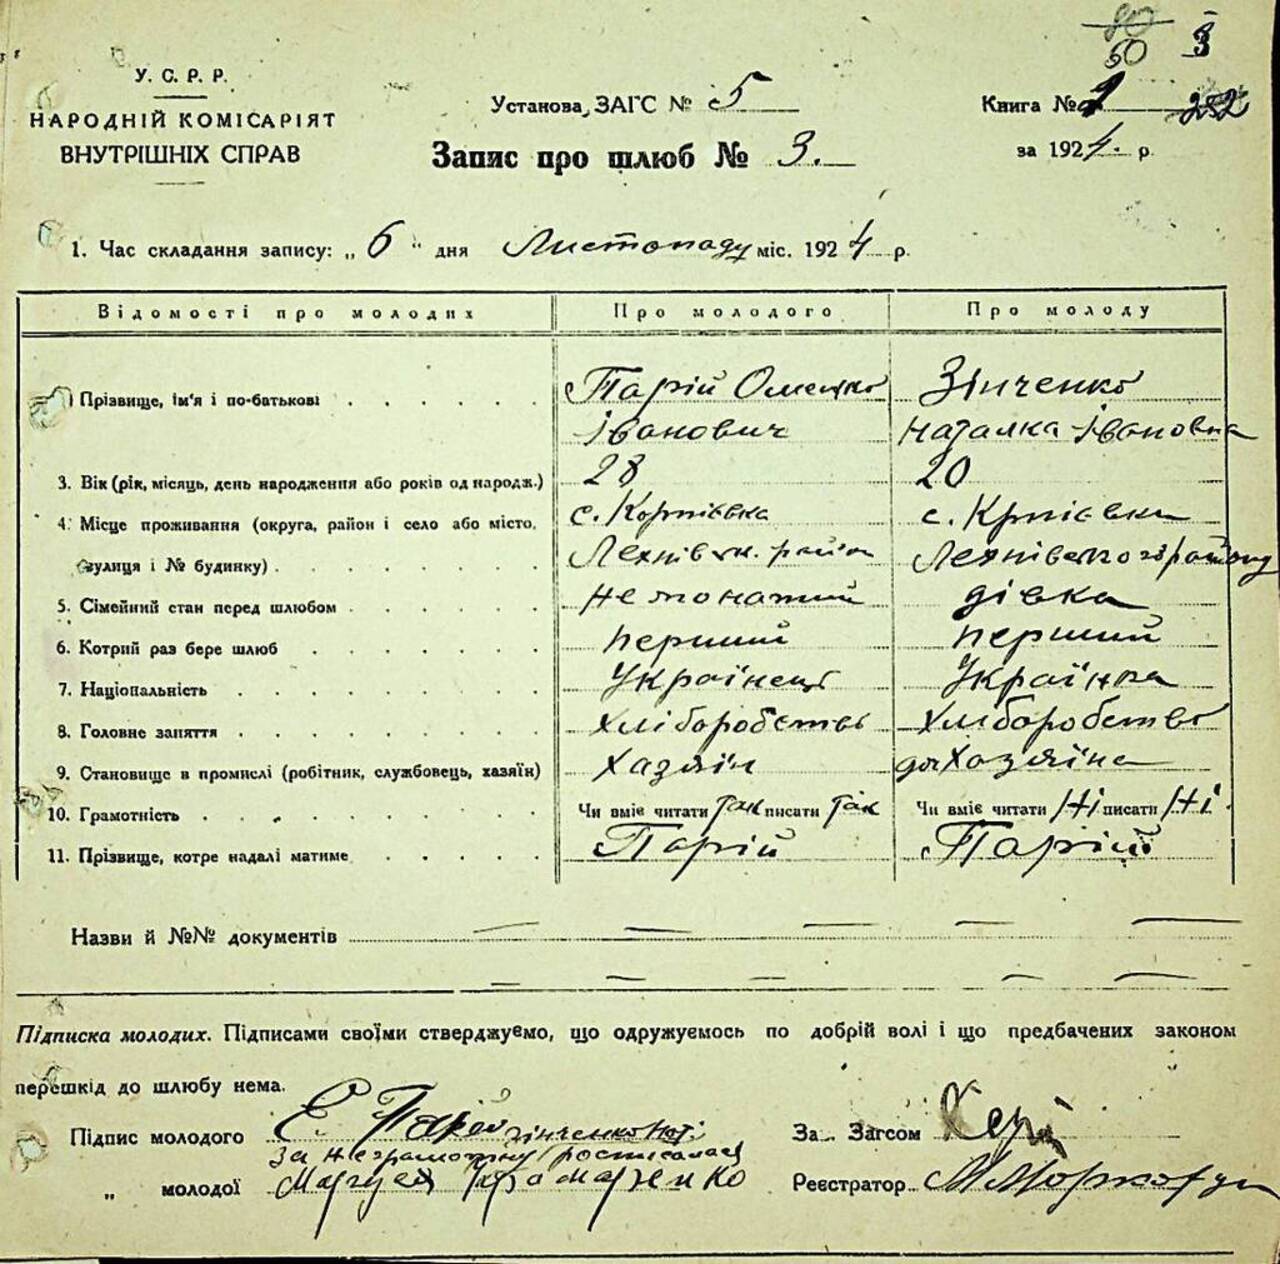 50 3
У. С. Р. Р.
НАРОДНІЙ КОМІСАРІЯТ
ВНУТРІШНІХ СПРАВ
Установа ЗАГС № 5
Запис про шлюб № 3.
Книга № 1 252
за 1924. р.
1. Час складання запису: „ 6 " дня Листопаду міс. 1924 р.
Відомості про молодих Про молодого Про молоду
Прізвище, ім'я і по-батькові Парій Омелько Зінченко
Іванович Наталка Івановна
3. Вік (рік, місяць, день народження або років од народж.) 28 20
4. Місце проживання (округа, район і село або місто, с. Корпіевка с. Крпіевки
вулиця і № будинку) район
5. Сімейний стан перед шлюбом не жонатий дівка
6. Котрий раз бере шлюб перший перший
7. Національність Українець Українка
8. Головне заняття Хліборобство Хліборобство
9. Становище в промислі (робітник, службовець, хазяїн) Хазяїн Хазяїна
10. Грамотність Чи вміє читати Так писати Так Чи вміє читати Ні писати Ні.
11. Прізвище, котре надалі матиме Парій Парій
Назви й №№ документів
Підписка молодих. Підписами своїми стверджуємо, що одружуємось по добрій волі і що предбачених законом
перешкід до шлюбу нема.
Підпис молодого Е. Парій Зінченко За Загсом
За неграмотну росписалась
„ молодої Реєстратор